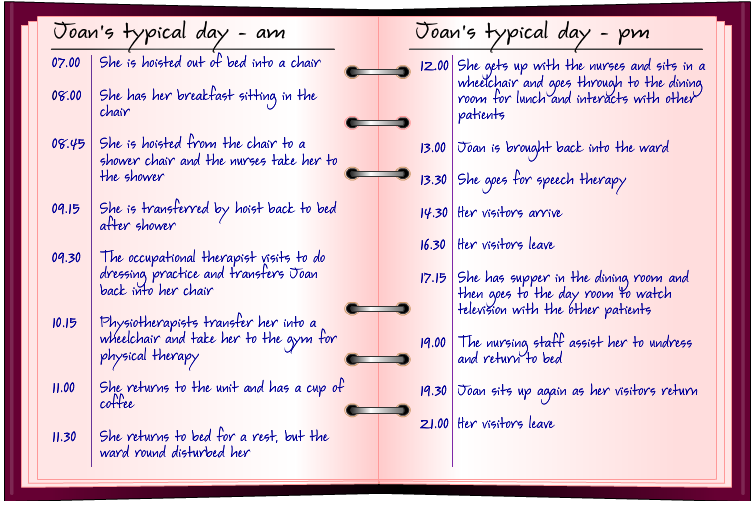 Joan's typical day - am
07.00 She is hoisted out of bed into a chair
08.00 She has her breakfast sitting in the
chair
08.45 She is hoisted from the chair to a
shower chair and the nurses take her to
the shower
09.15 She is transferred by hoist back to bed
after shower
09.30 The occupational therapist visits to do
dressing practice and transfers Joan
back into her chair
10.15 Physiotherapists transfer her into a
wheelchair and take her to the gym for
physical therapy
11.00 She returns to the unit and has a cup of
coffee
11.30 She returns to bed for a rest, but the
ward round disturbed her
Joan's typical day - pm
12.00 She gets up with the nurses and sits in a
wheelchair and goes through to the dining
room for lunch and interacts with other
patients
13.00 Joan is brought back into the ward
13.30 She goes for speech therapy
14.30 Her visitors arrive
16.30 Her visitors leave
17.15 She has supper in the dining room and
then goes to the day room to watch
television with the other patients
19.00 The nursing staff assist her to undress
and return to bed
19.30 Joan sits up again as her visitors return
21.00 Her visitors leave